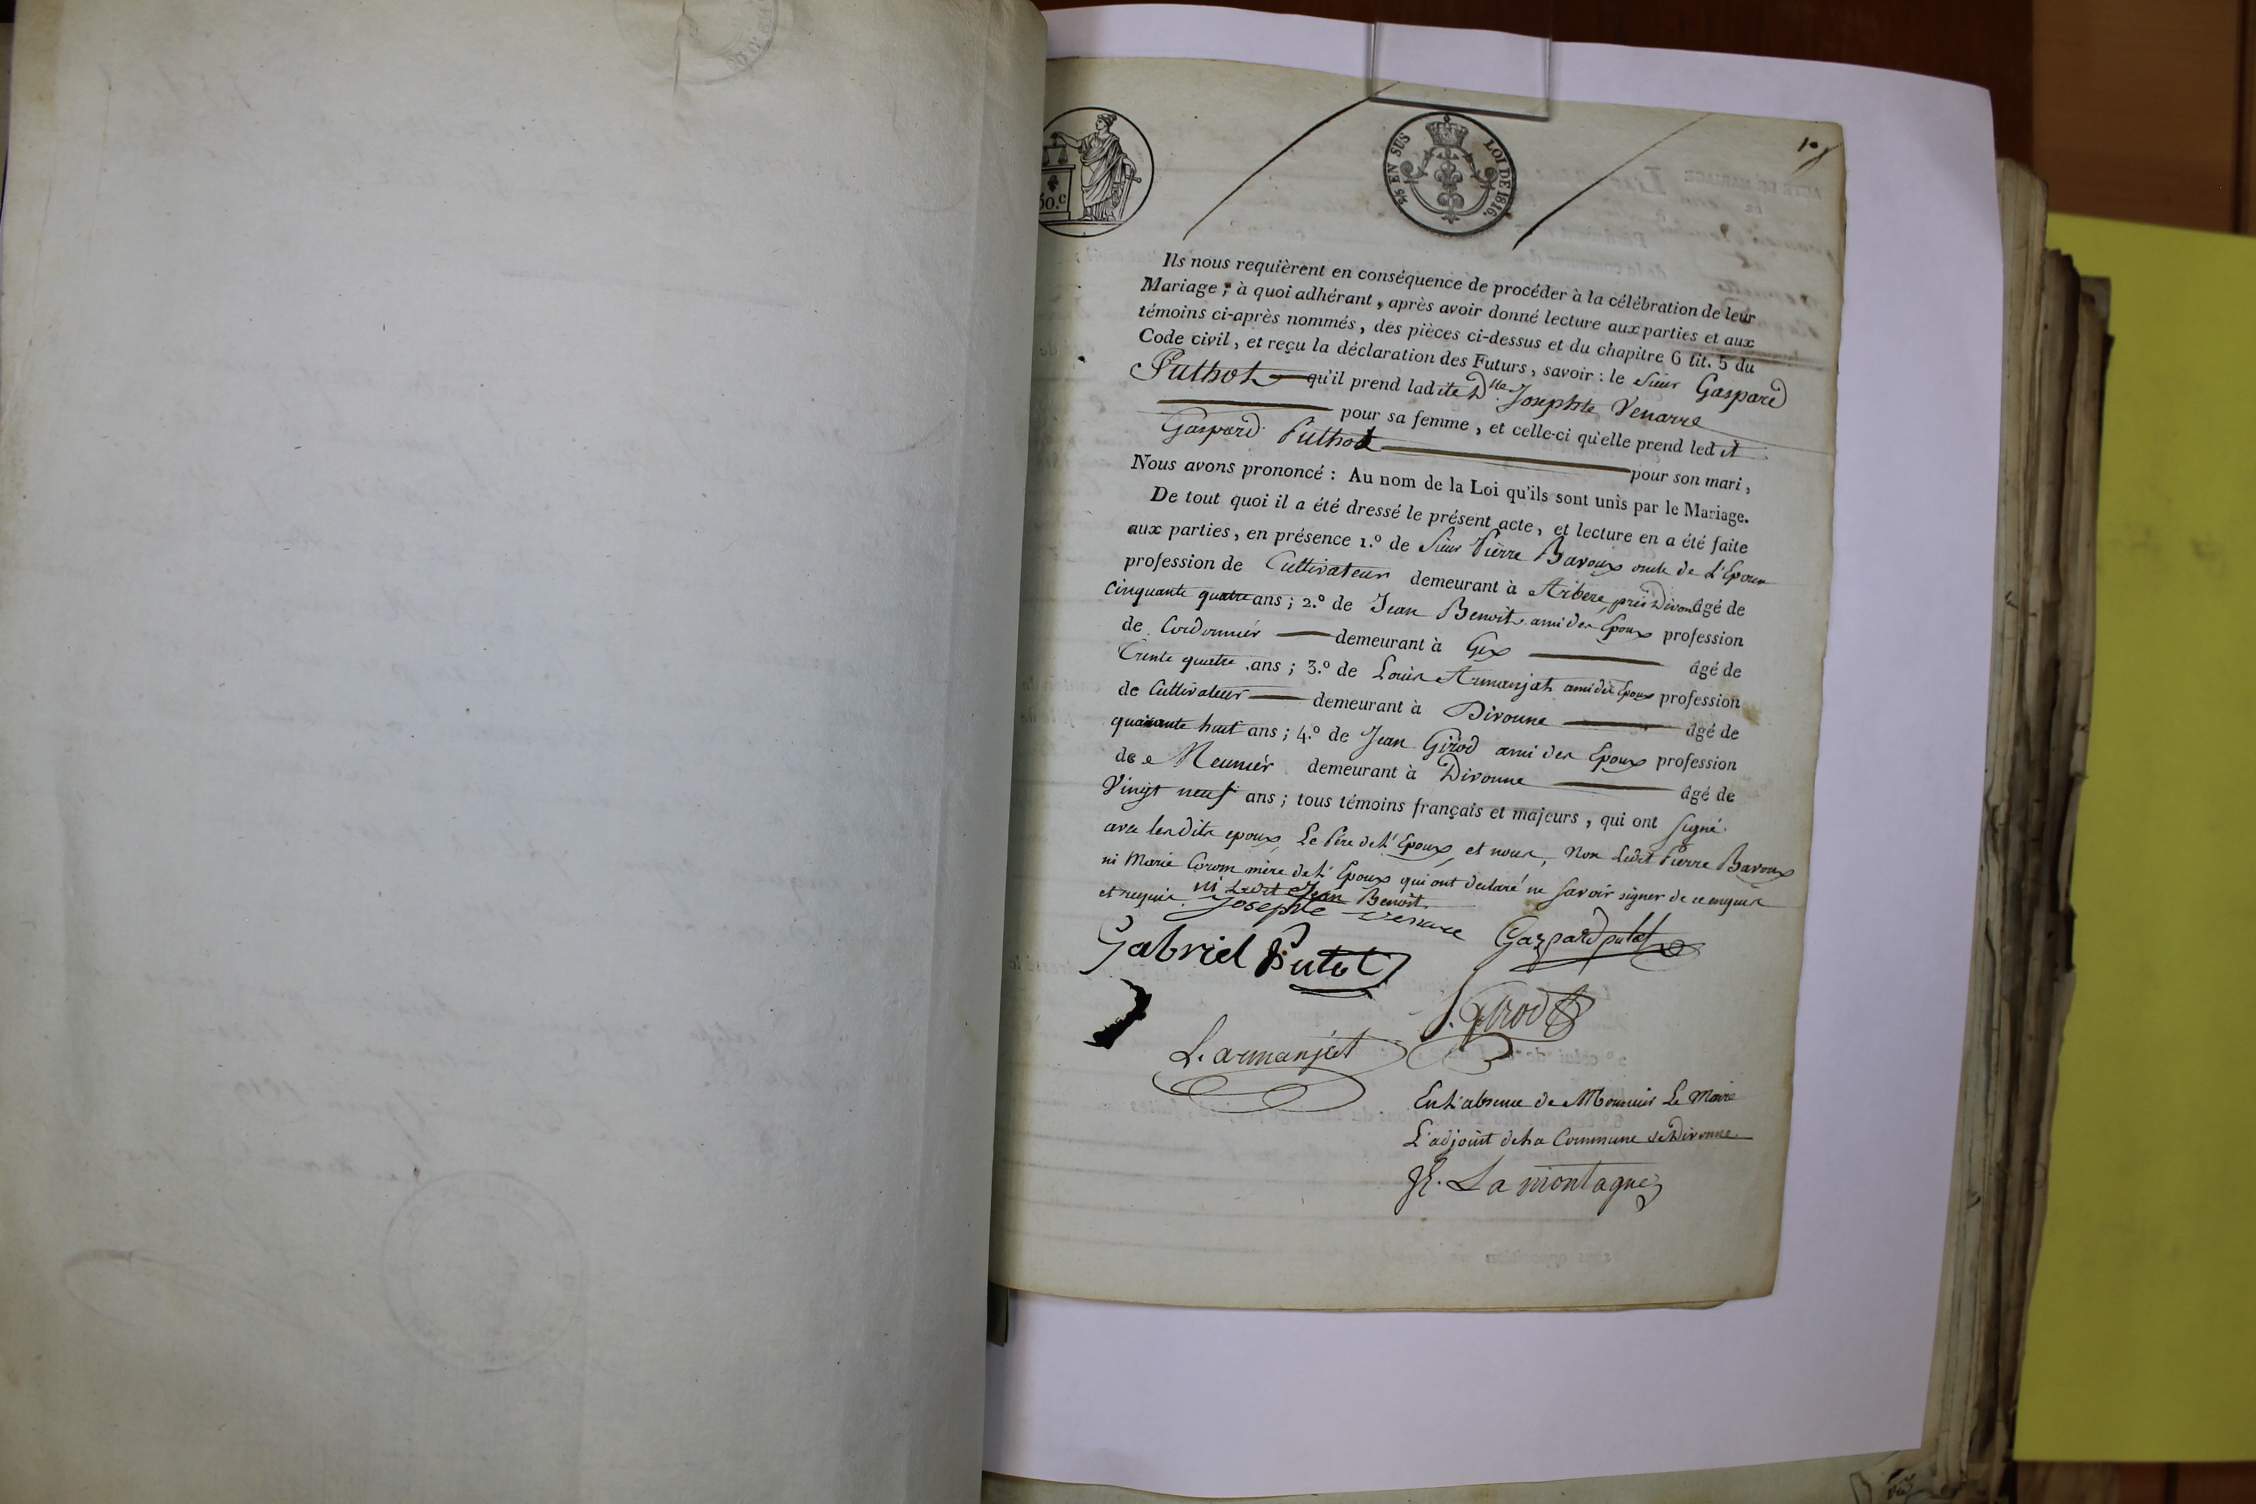 50.c
5/6 EN SUS LOI DE 1816.
Ils nous requièrent en conséquence de procéder à la célébration de leur
Mariage ; à quoi adhérant, après avoir donné lecture aux parties et aux
témoins ci-après nommés, des pièces ci-dessus et du chapitre 6 tit. 5 du
Code civil, et reçu la déclaration des Futurs, savoir : le Sieur Gaspard
Puthod qu'il prend ladite Dlle Josephte Venarre
pour sa femme, et celle-ci qu'elle prend led it
Gaspard Puthod pour son mari,
Nous avons prononcé : Au nom de la Loi qu'ils sont unis par le Mariage.
De tout quoi il a été dressé le présent acte, et lecture en a été faite
aux parties, en présence 1.º de Sieur Pierre Bavoux oncle de L'Epoux
profession de Cultivateur demeurant à Arbere près Divonne âgé de
Cinquante quatre ans ; 2.º de Jean Benoit ami des Epoux profession
de Cordonnier demeurant à Gex âgé de
Trente quatre ans ; 3.º de Louis Armanjat ami des Epoux profession
de Cultivateur demeurant à Divonne âgé de
quarante huit ans ; 4.º de Jean Girod ami des Epoux profession
de Meunier demeurant à Divonne âgé de
Vingt neuf ans ; tous témoins français et majeurs, qui ont signé
avec lesdits epoux, Le Père de l'Epoux, et nous, Non Ledit Pierre Bavoux
ni Marie mère de l'Epoux qui ont declaré ne savoir signer de ce enquis
et requis. ni Ledit Jean Benoit
Josephte Venarre
Gaspard putod
Gabriel Putod
J. Girod
L. armanjat
En l'absence de Monsieur Le Maire
L'adjoint de la Commune de Divonne
La montagne